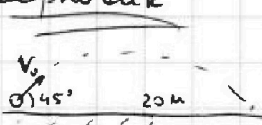 V₀
45° 20 м